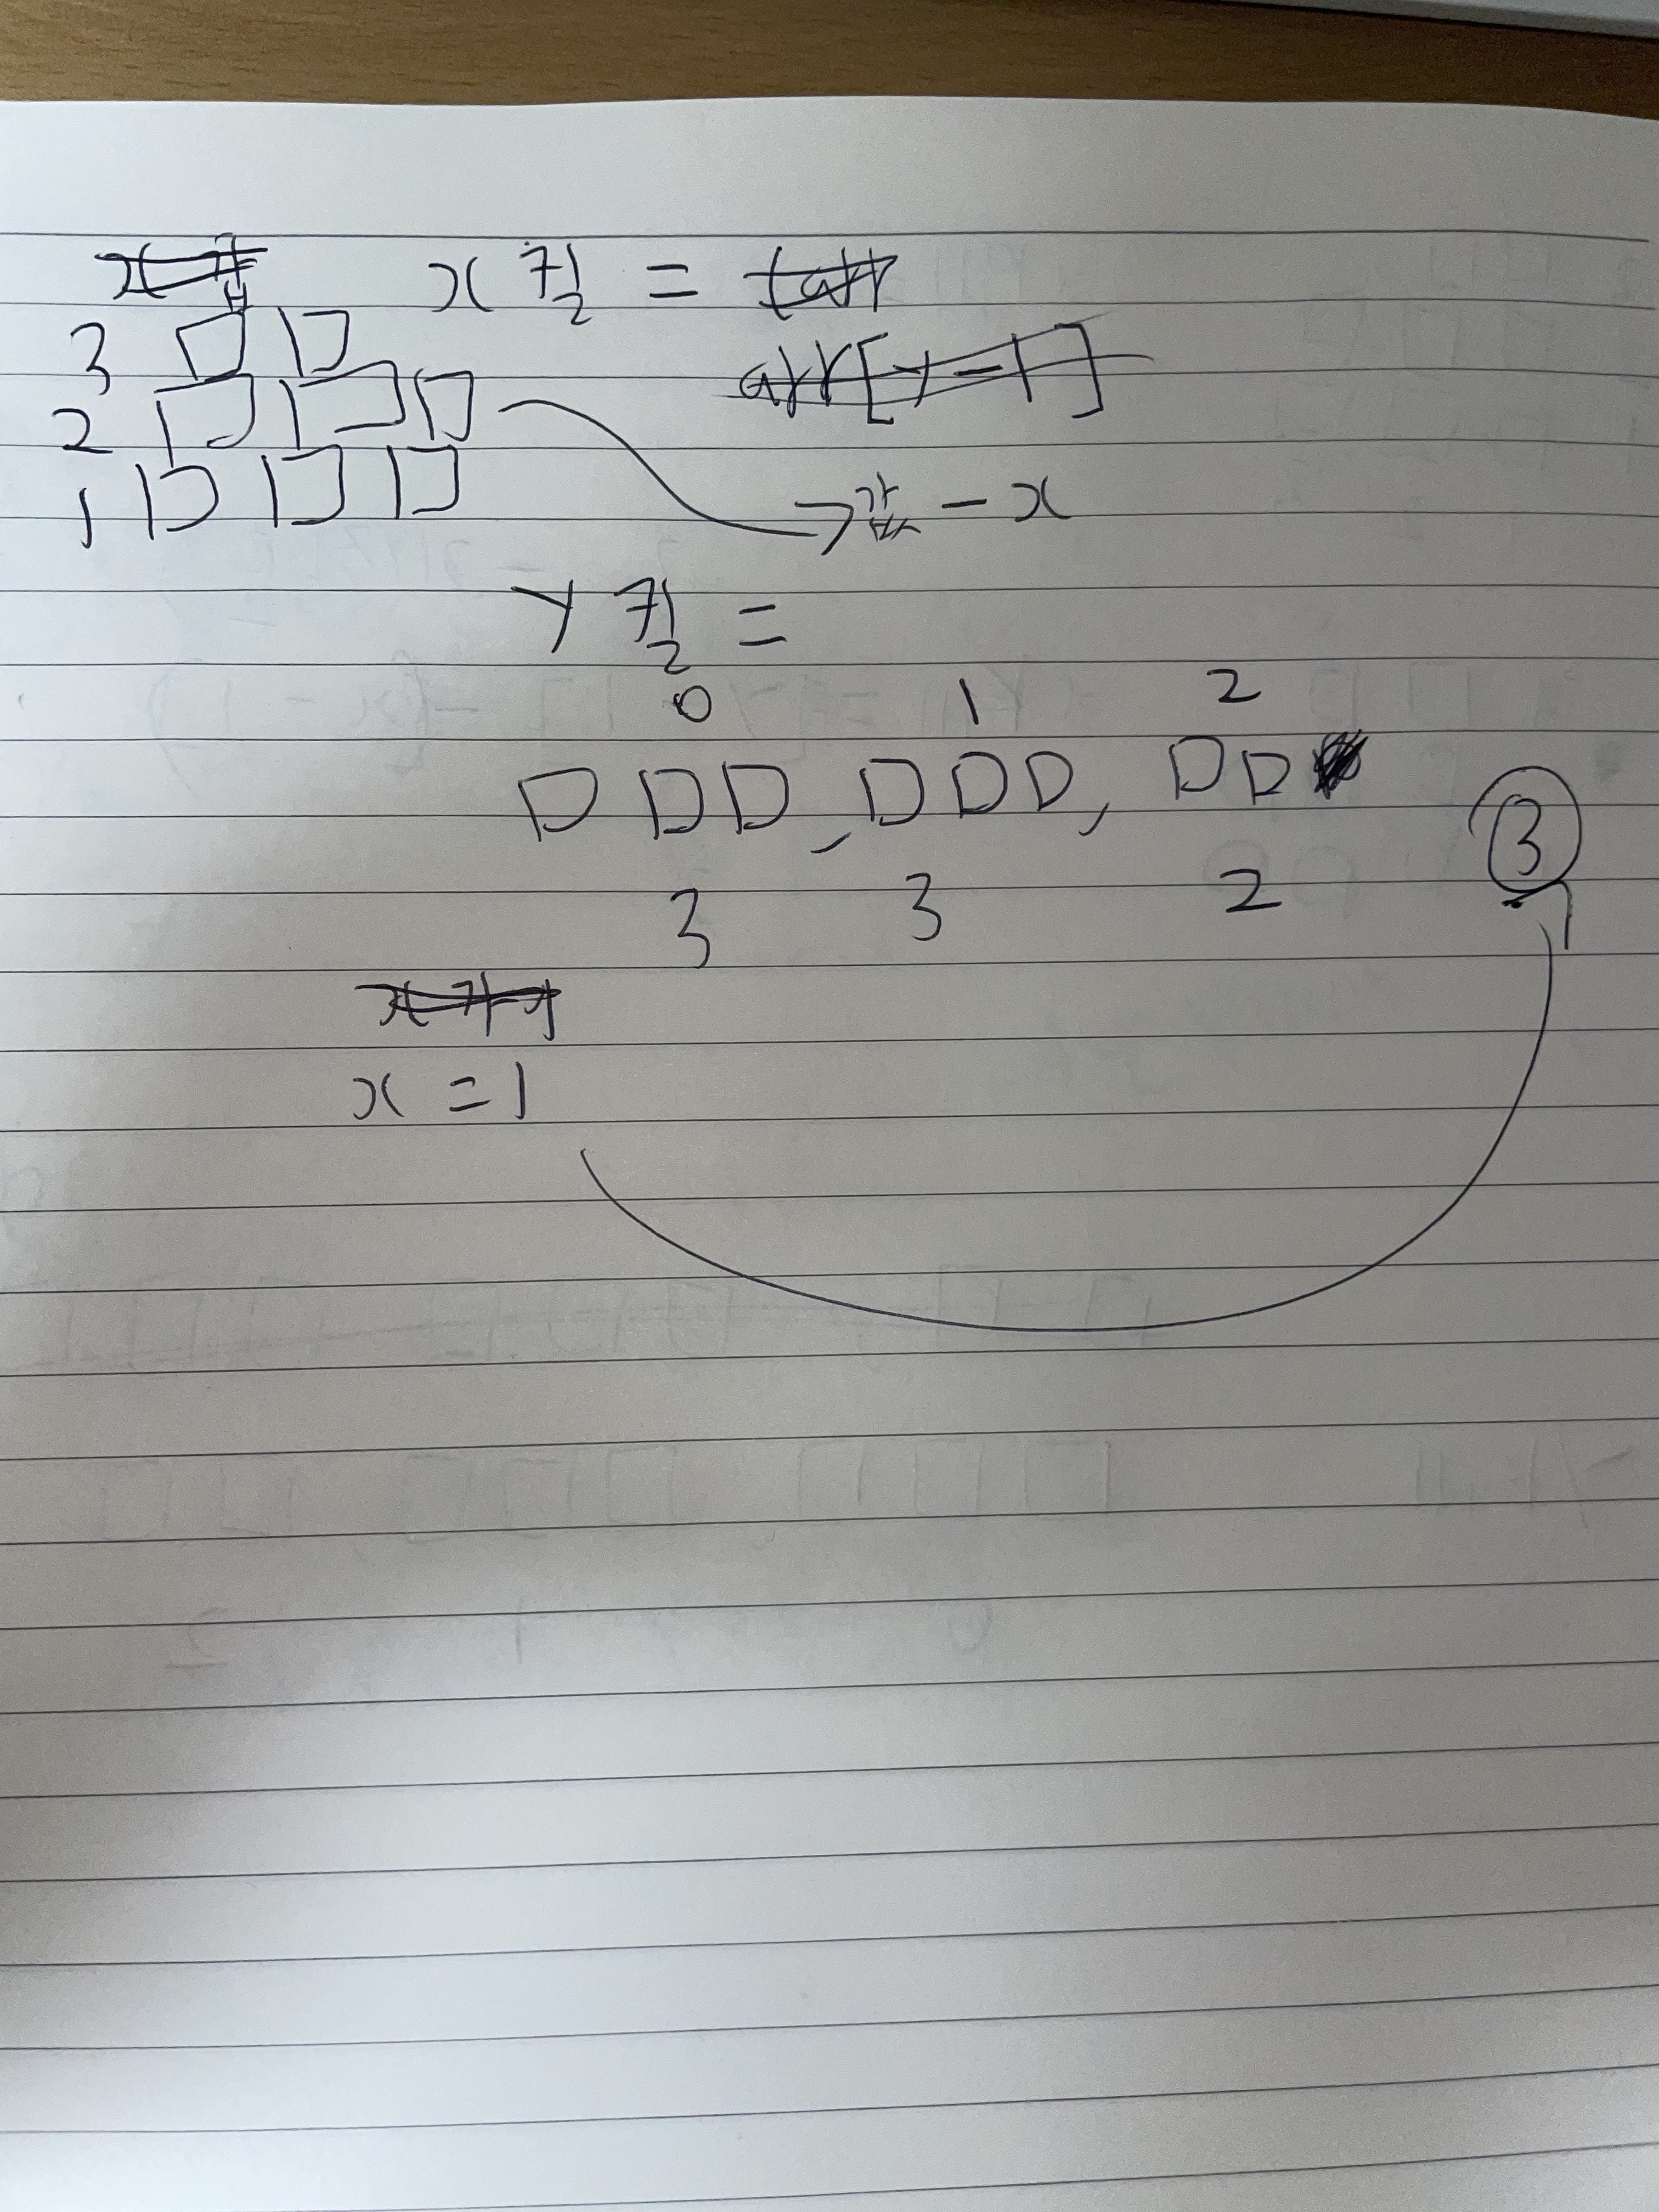 x 길 =
3
2
1
→ 값 - x
y 길 =
0 1 2
3 3 2
3
x = 1